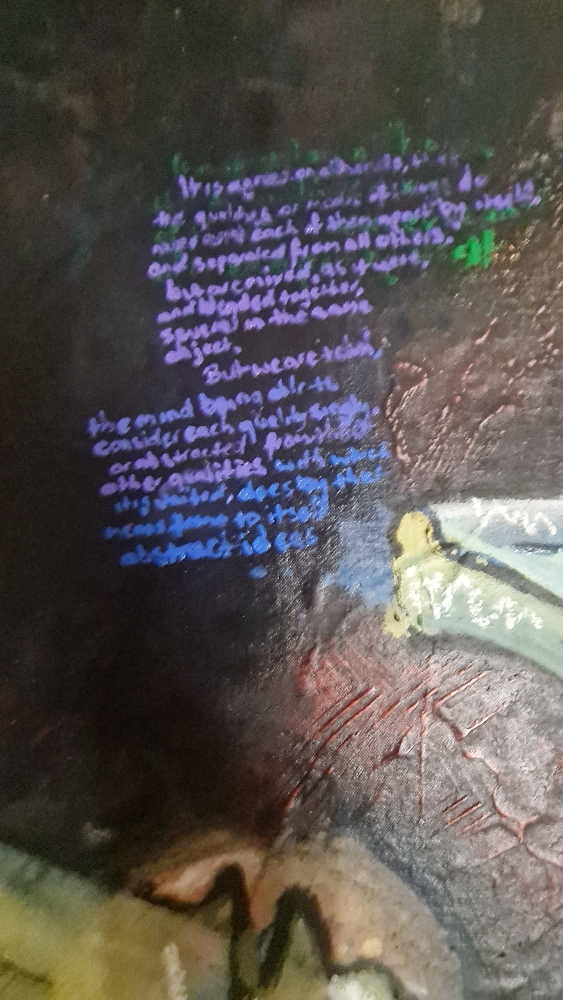 It is agreed on all hands, that
the qualities or modes of things do
never each of them apart by itself,
and separated from all others,
but are mixed, as it were,
and blended together,
several in the same
object.
But we are told,
the mind being able to
consider each quality singly,
or abstracted from those
other qualities with which
it is united, does by that
means frame to itself
abstract ideas